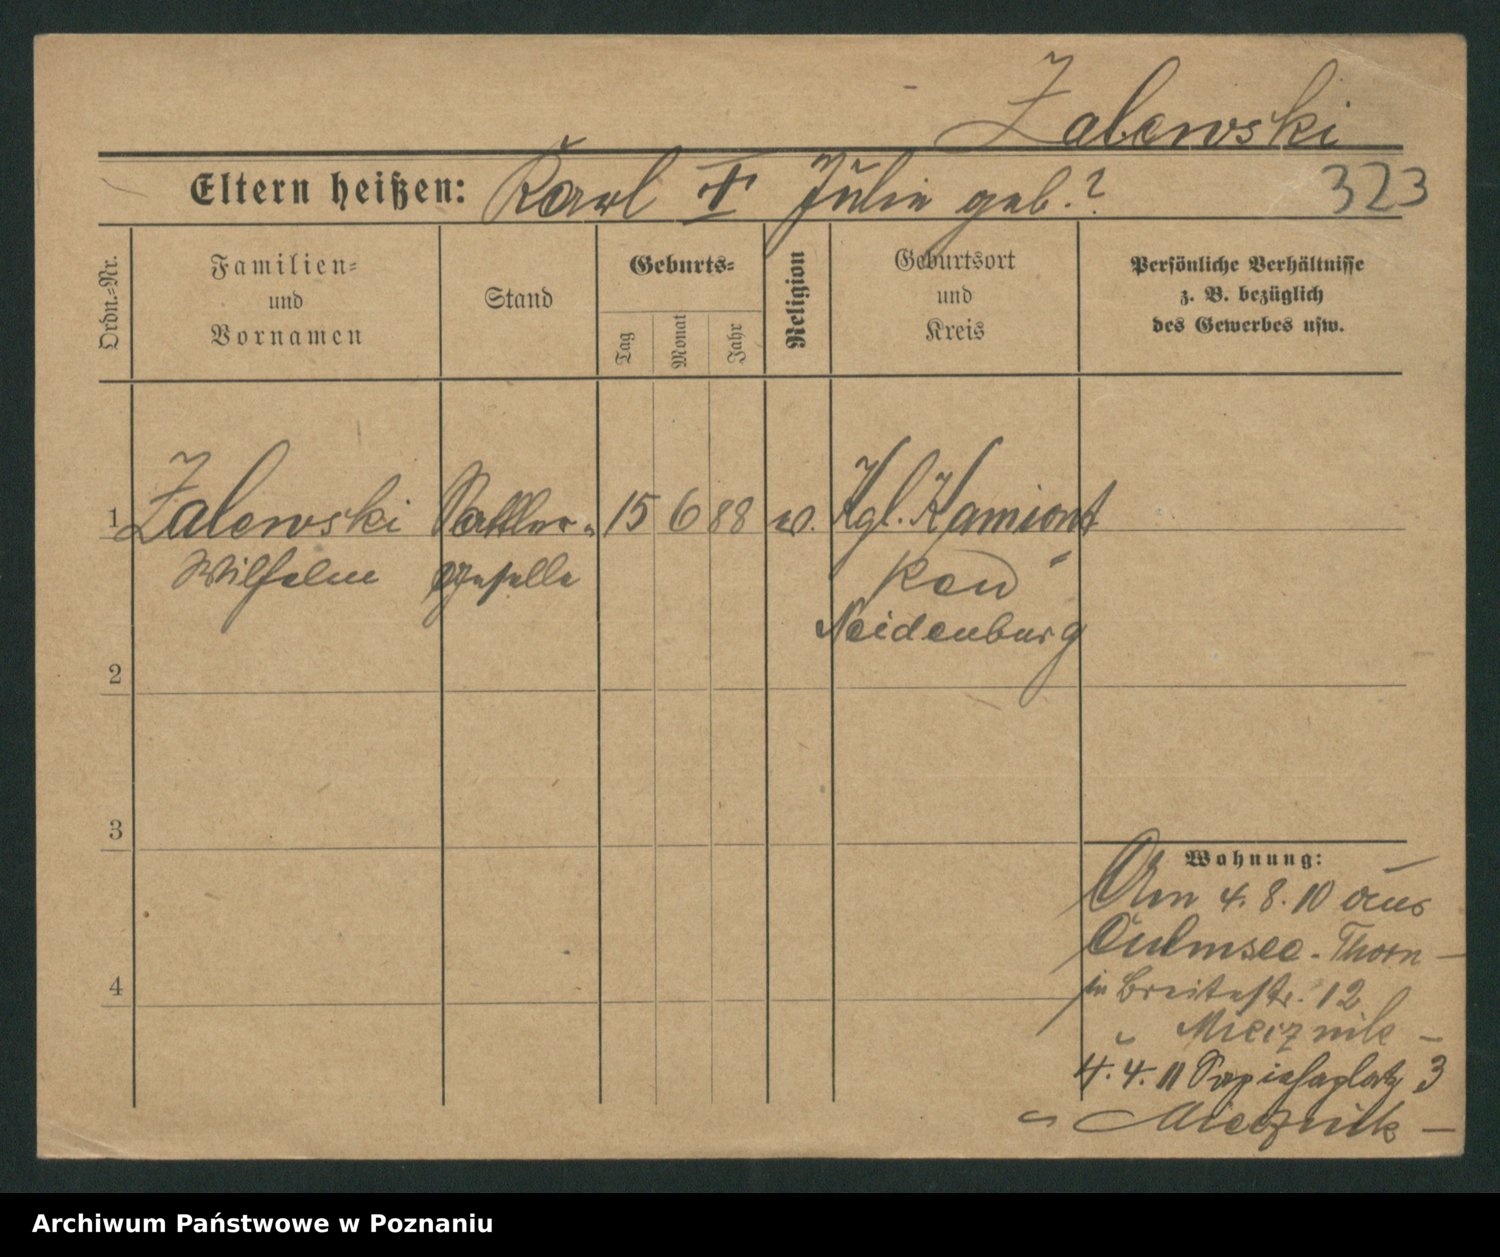 Zalewski
Eltern heißen: Karl † Julie geb. ?
323
Ordn.-Nr.
Familien-
und
Vornamen
Stand
Geburts-
Tag
Monat
Jahr
Religion
Geburtsort
und
Kreis
Persönliche Verhältnisse
z. B. bezüglich
des Gewerbes usw.
1 Zalewski Sattler- 15 6 88 ev. Kgl. Kamiont
Wilhelm geselle ken
Neidenburg
2
3
4
Wohnung:
Am 4. 8. 10 aus
Culmsee - Thorn -
in Breitestr. 12
Miecznik -
4. 4. 11 Sapiehaplatz 3
Miecznik -
Archiwum Państwowe w Poznaniu